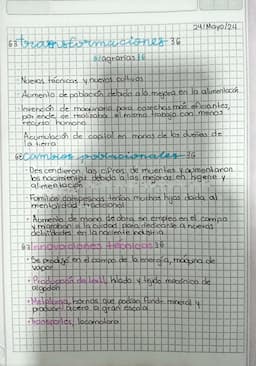 24/Mayo/24.
transformaciones
agrarias
Nuevas técnicas y nuevos cultivos
Aumento de población debido a la mejora en la alimentación
Invención de maquinaria para cosechas más eficientes,
por ende, se realizaba el mismo trabajo con menos
recurso humano
Acumulación de capital en manos de los dueños de
la tierra
Cambios poblacionales
Descendieron las cifras de muertes y aumentaron
los nacimientos debido a las mejoras en higiene y
alimentación
Familias campesinas tenían muchos hijos dada al
mentalidad tradicional
Aumento de mano de obra sin empleo en el campo
y marchaban a la ciudad para dedicarse a nuevas
actividades en la naciente industria
Innovaciones técnicas
Se produjo en el campo de la energía, máquina de
vapor
Producción de textil, hilado y tejido mecánico de
algodón
Metalurgia, hornos que podían fundir mineral y
producir acero a gran escala
transportes, locomotora